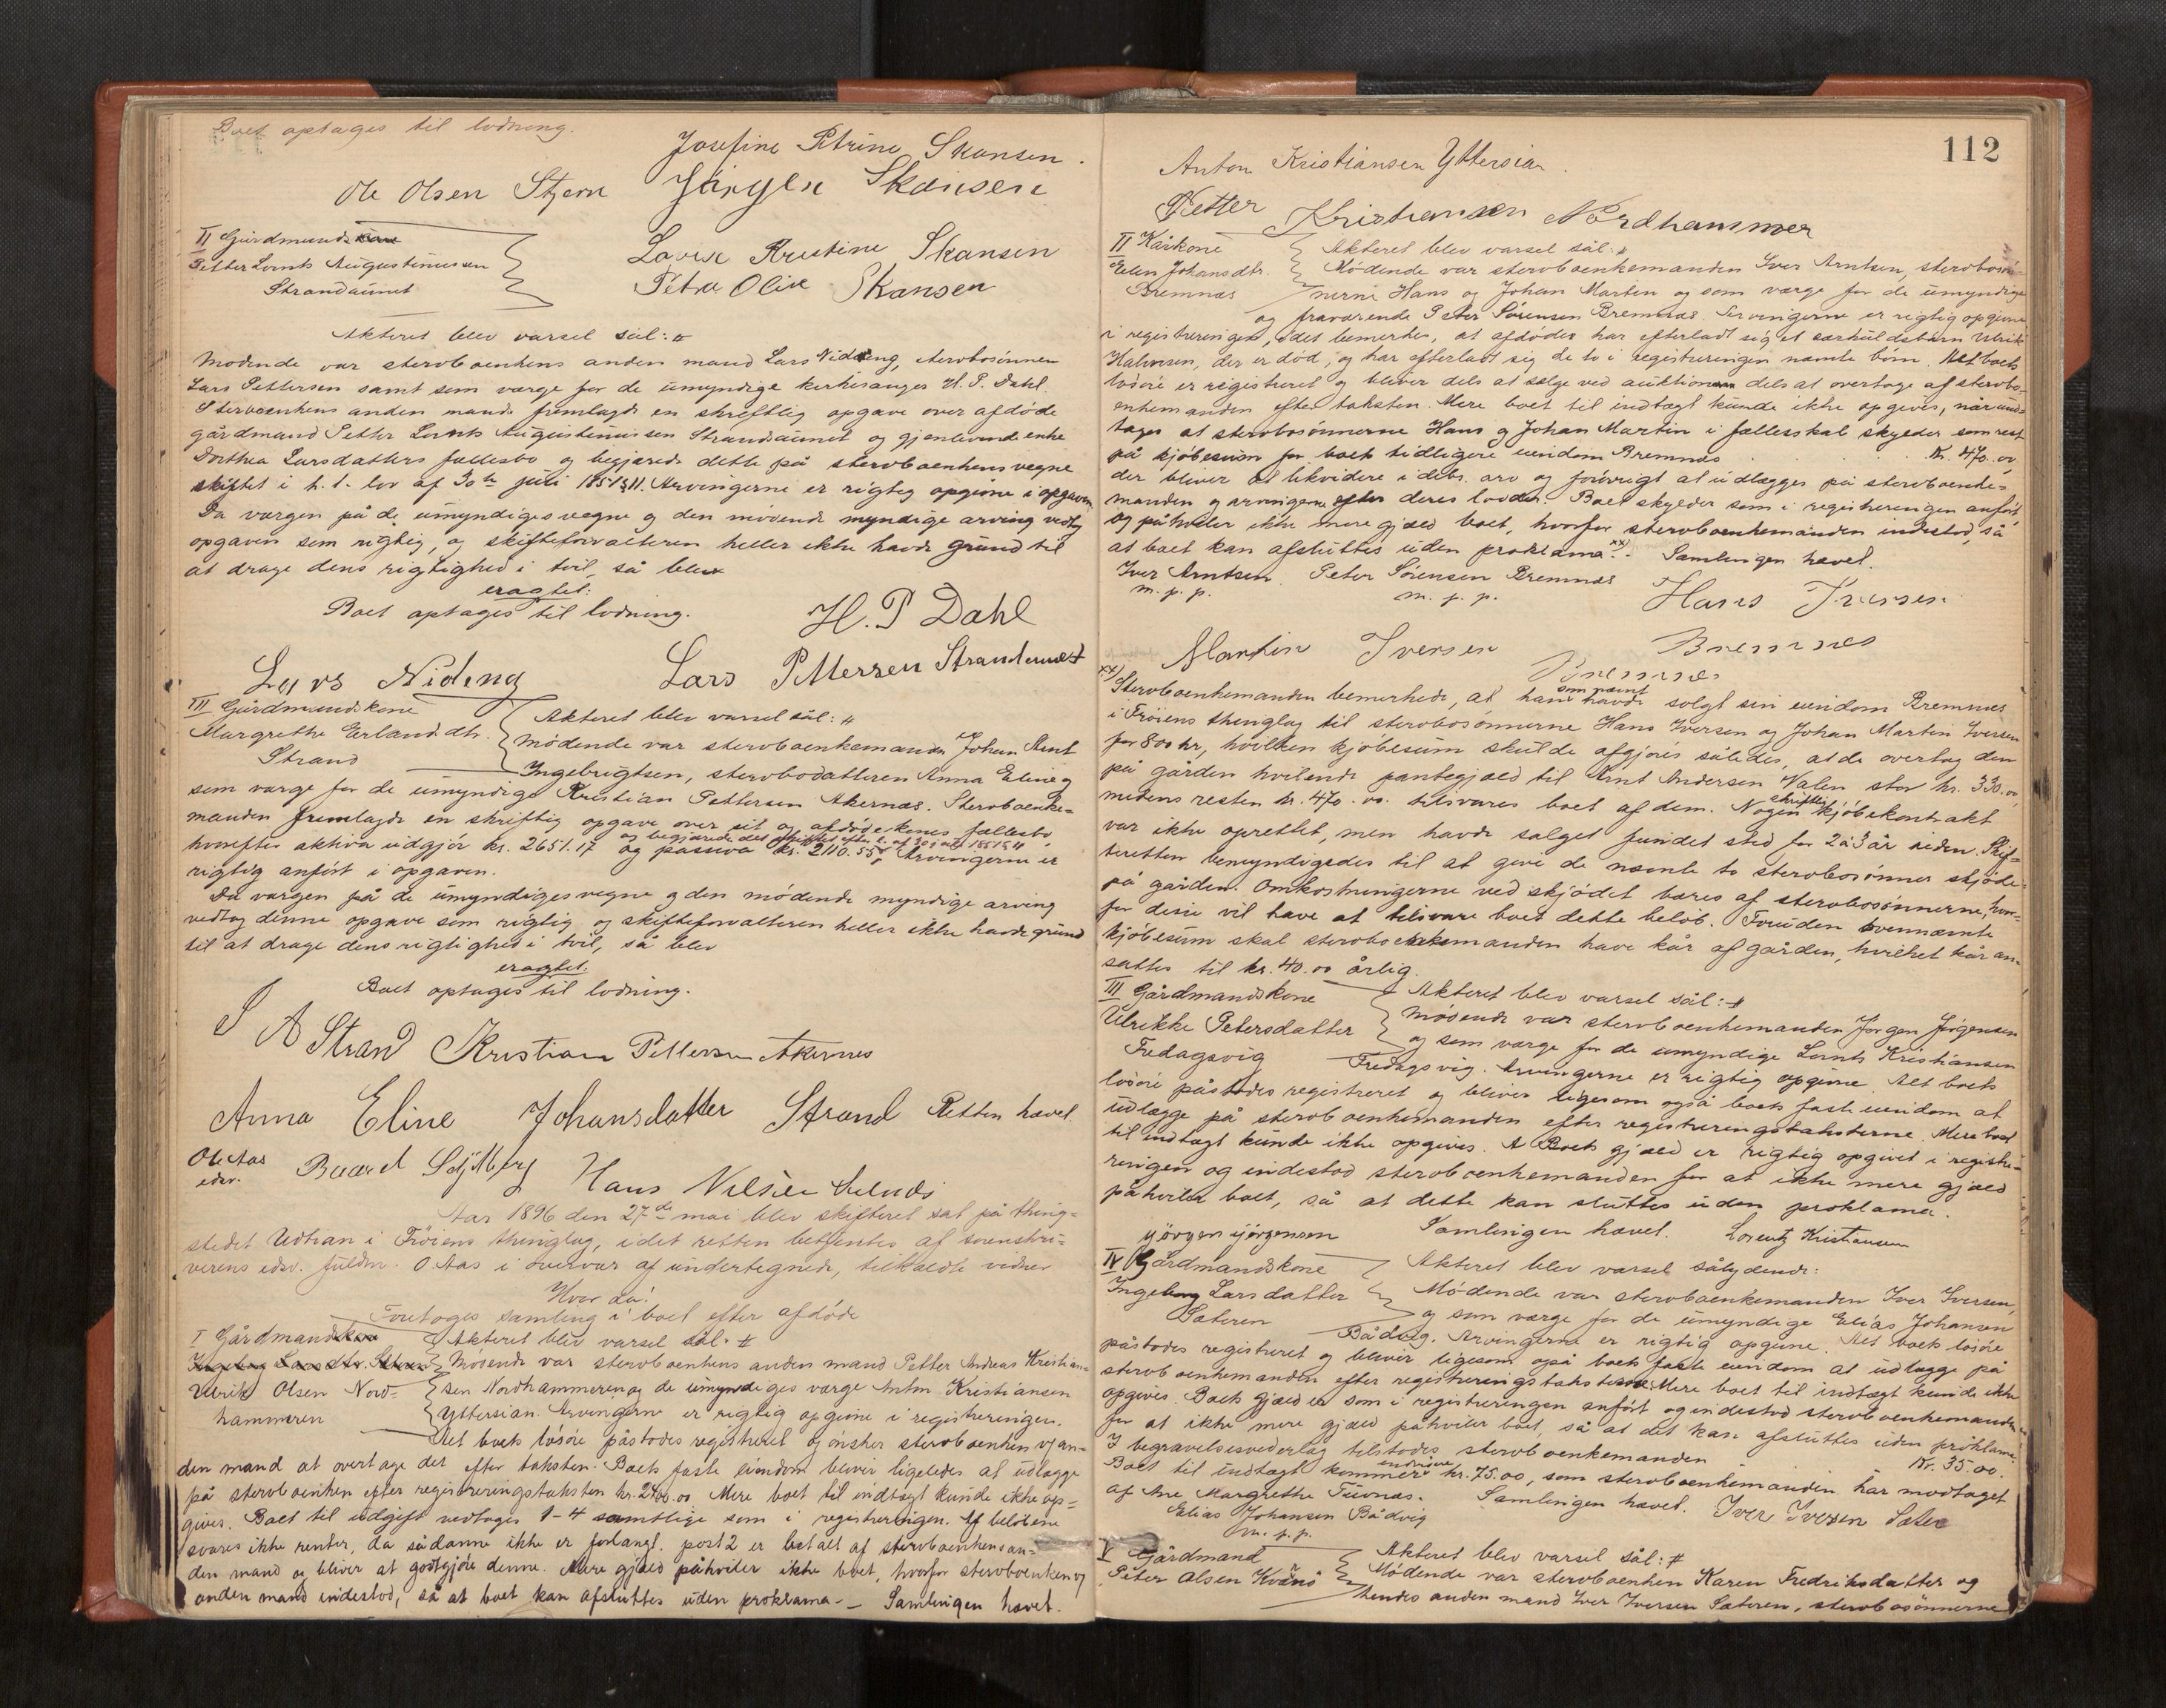 Boet optages til lodning.
Josefine Petrine Skansen.
Ole Olsen Stjern Jörgen Skansen
II Gårdmands
Petter Lornts Augustinussen
Strandaunet
Lovise Kristine Skansen
Petra Olive Skansen
Akteret blev varsel sål: #
Mødende var stervboenkens anden mand Lars Nideng, stervbosønnen
Lars Pettersen samt som værge for de umyndige kirkesanger H. P. Dahl.
Stervboenkens anden mand fremlagde en skriftlig opgave over afdøde
gårdmand Petter Lornts Augustinussen Strandaunet og gjenlevende enke
Dorthea Larsdatters fællesbo og begjærede dette på stervboenkens vegne
skiftet i h. t. lov af 30te juli 1851 § 11. Arvingerne er rigtig opgivne i opgaven
Da værgen på de umyndiges vegne og den mødende myndige arving vedtog
opgaven som rigtig, og skifteforvalteren heller ikke havde grund til
at drage dens rigtighed i tvil, så blev
eragtet:
Boet optages til lodning.
H. P Dahl
Lars Nideng Lars Pettersen Strandaunet
III Gårdmandskone
Margrethe Erlandsdtr.
Strand
Akteret blev varsel sål: #
Mødende var stervboenkemanden Johan Arnt
Ingebrigtsen, stervbodatteren Anna Eline og
som værge for de umyndige Kristian Pettersen Akernæs. Stervboenke-
manden fremlagde en skriftlig opgave over sit og afdøde kones fællesbo,
og begjærede det skiftet efter l. af 30 juli 1851 § 11
hvorefter aktiva udgjør kr. 2651.17 og passiva kr. 2110.55. Arvingerne er
rigtig anført i opgaven.
Da værgen på de umyndiges vegne og den mødende myndige arving
vedtog denne opgave som rigtig og skifteforvalteren heller ikke havde grund
til at drage dens rigtighed i tvil, så blev
eragtet:
Boet optages til lodning.
J A Strand Kristian Pettersen Akernes
Anna Eline Johansdatter Strand Retten hævet.
O. Aas
edsv.
Baard Hans Nilsen
Aar 1896 den 27de mai blev skifteret sat på thing-
stedet Udtian i Frøiens thinglag, idet retten betjentes af sorenskri-
verens edsv. fuldm. O Aas i overvær af undertegnede, tilkaldte vidner
Hvor da:
Foretoges samling i boet efter afdøde
I Gårdmand
Ulrik Olsen Nord-
hammeren
Akteret blev varsel sål: #
Mødende var stervboenkens anden mand Petter Andreas Kristian-
sen Nordhammeren og de umyndiges værge Anton Kristiansen
Yttersian. Arvingerne er rigtig opgivne i registreringen.
Alt boets løsøre påstodes registreret og ønsker stervboenken og an-
den mand at overtage det efter taksten. Boets faste eiendom bliver ligeledes at udlægge
på stervboenken efter registreringstaksten kr. 2400.00 Mere boet til indtægt kunde ikke op-
gives. Boet til udgift vedtoges 1-4 samtlige som i registreringen. Af beløbene
svares ikke renter, da sådanne ikke er forlangt. post 2 er betalt af stervboenkens an-
den mand og bliver at godtgjøre denne. Mere gjæld påhviler ikke boet, hvorfor stervboenken og
anden mand indestod, så at boet kan afsluttes uden proklama. — Samlingen hævet.
112
Anton Kristiansen Yttersian.
Petter Kristiansen Nordhammer
II Kårkone
Elen Johansdtr.
Bremnæs
Akteret blev varsel sål: #
Mødende var stervboenkemanden Iver Arntsen, stervbosøn-
nerne Hans og Johan Martin og som værge for de umyndige
og fraværende Peter Sørensen Bremnæs. Arvingerne er rigtig opgivne
i registreringen, idet bemerkes, at afdøde har efterladt sig et særkuldsbarn Ulrik
Halvorsen, der er død, og har efterladt sig de to i registreringen nævnte børn. Alt boets
løsøre er registreret og bliver dels at sælge ved auktion dels at overtage af stervbo-
enkemanden efter taksten. Mere boet til indtægt kunde ikke opgives, når und-
tages at stervbosønnerne Hans og Johan Martin i fællesskab skylder som rest
på kjøbesum for boets tidligere eiendom Bremnæs . . . . kr. 470.00
der bliver at likvidere i debs. arv og forøvrigt at udlægges på stervboenke-
manden og arvingerne efter deres lodder. Boet skylder som i registreringen anført,
og påhviler ikke mere gjæld boet, hvorfor stervboenkemanden indestod, så
at boet kan afsluttes uden proklama. xx) Samlingen hævet.
Iver Arntsen Peter Sørensen Bremnæs Hans Iversen
m. p. p. m. p. p.
Martin Iversen Bremnes
Bremnes
xx) Stervboenkemanden bemerkede, at han som nævnt havde solgt sin eiendom Bremnæs
i Frøiens thinglag til stervbosønnerne Hans Iversen og Johan Martin Iversen
for 800 kr, hvilken kjøbesum skulde afgjøres således, at de overtog den
på gården hvilende pantegjæld til Arnt Andersen Valen stor kr. 330.00,
medens resten kr. 470.00 tilsvares boet af dem. Nogen skriftlig kjøbekontrakt
var ikke oprettet, men havde salget fundet sted for 2 à 3 år siden. Skif-
teretten bemyndigedes til at give de nævnte to stervbosønner skjøde
på gården. Omkostningerne ved skjødet bæres af stervbosønnerne, hvor-
for disse vil have at tilsvare boet dette beløb. Foruden ovennævnte
kjøbesum skal stervboenkemanden have kår af gården, hvilket kår an-
sættes til kr. 40.00 årlig.
III Gårdmandskone
Ulrikke Petersdatter
Fredagsvig
Akteret blev varsel sål: #
Mødende var stervboenkemanden Jørgen Jørgensen
og som værge for de umyndige Lornts Kristiansen
Fredagsvig. Arvingerne er rigtig opgivne. Alt boets
løsøre påstodes registreret og bliver ligesom også boets faste eiendom at
udlægge på stervboenkemanden efter registreringstaksterne. Mere boet
til indtægt kunde ikke opgives. Boets gjæld er rigtig opgivet i registre-
ringen og indestod stervboenkemanden for at ikke mere gjæld
påhviler boet, så at dette kan sluttes uden proklama.
Jörgen Jörgensen Samlingen hævet. Lorentz Kristiansen
IV Gårdmandskone
Ingeborg Larsdatter
Sæteren
Akteret blev varsel sålydende:
Mødende var stervboenkemanden Iver Iversen,
og som værge for de umyndige Elias Johansen
Bådvig. Arvingerne er rigtig opgivne. Alt boets løsøre
påstodes registreret og bliver ligesom også boets faste eiendom at udlægge på
stervboenkemanden efter registreringstaksterne. Mere boet til indtægt kunde ikke
opgives. Boets gjæld er som i registreringen anført og indestod stervboenkemanden
for at ikke mere gjæld påhviler boet, så at det kan afsluttes uden proklama.
I begravelsesvederlag tilstodes stervboenkemanden kr. 35.00.
Boet til indtægt kommer endvidere kr. 75.00, som stervboenkemanden har modtaget
af Ane Margrethe Tuvnæs. Samlingen hævet. Iver Iversen Sæter
Elias Johansen Bådvig
m. p. p.
V Gårdmand
Peter Olsen Kvænø
Akteret blev varsel sål: #
Mødende var stervboenken Karen Fredriksdatter og
hendes anden mand Iver Iversen Sæteren, stervbosønnerne